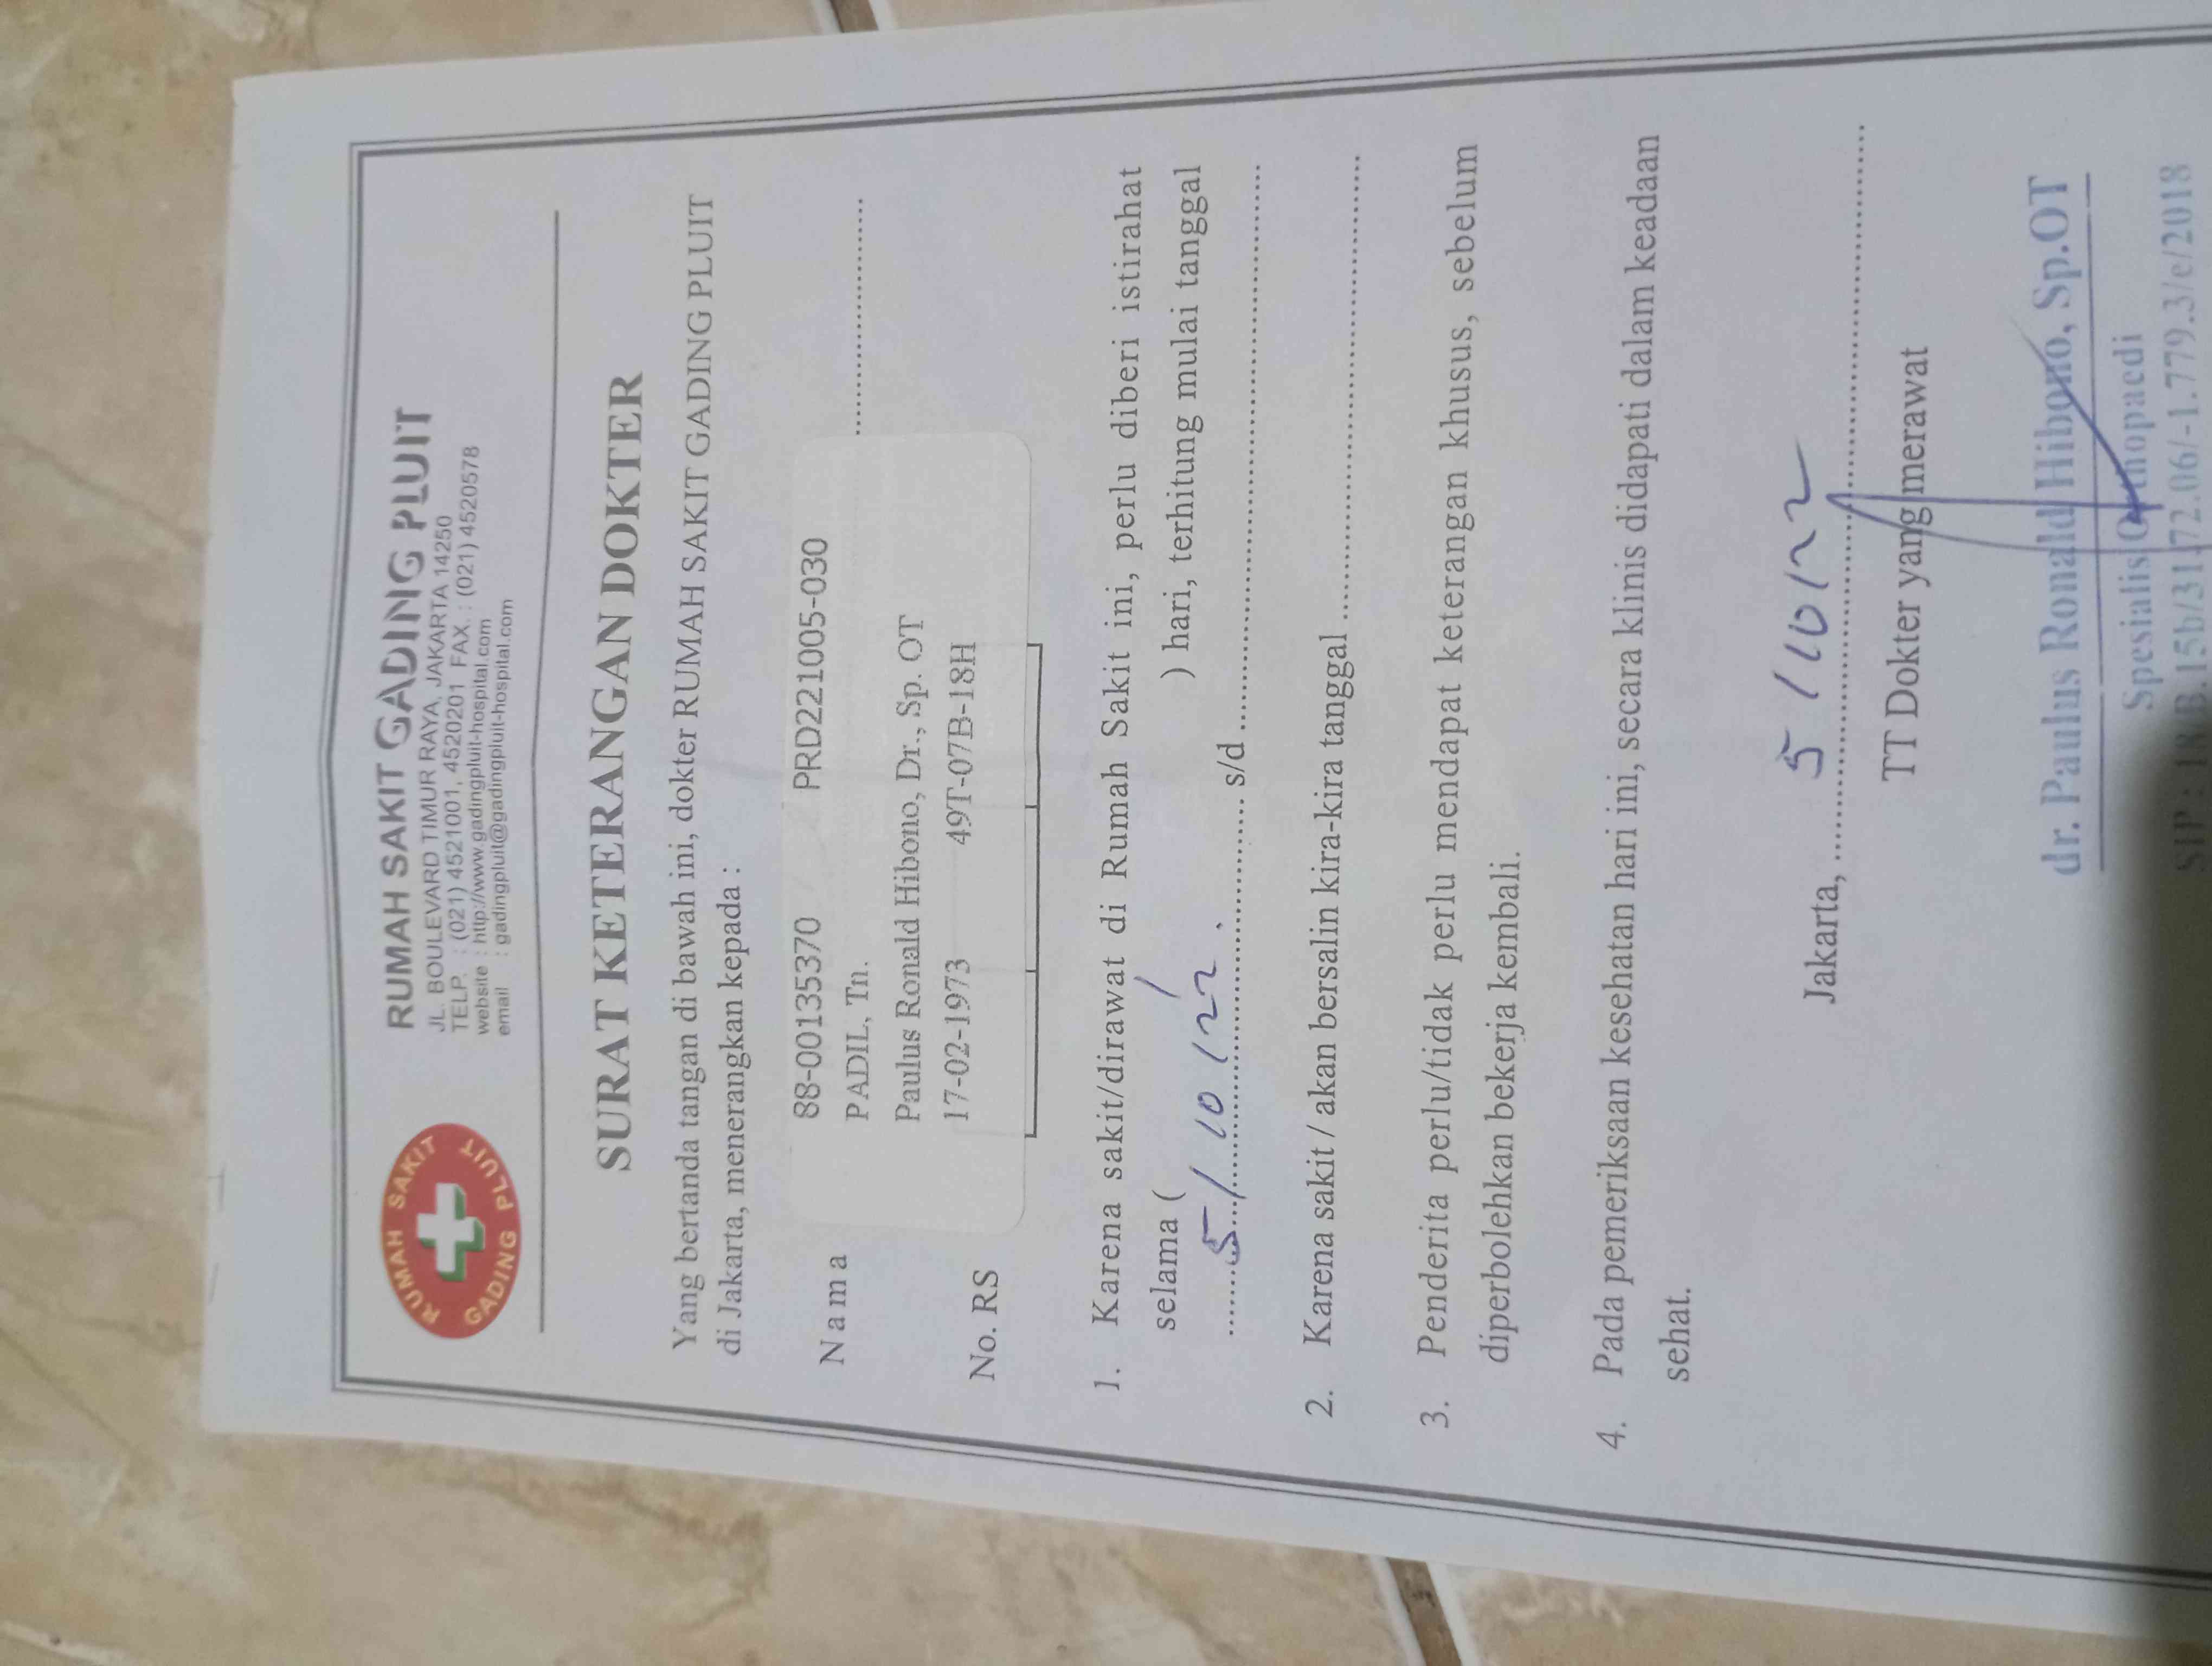 RUMAH SAKIT
GADING PLUIT
RUMAH SAKIT GADING PLUIT
JL. BOULEVARD TIMUR RAYA, JAKARTA 14250
TELP. : (021) 4521001, 4520201 FAX. : (021) 4520578
website : http://www.gadingpluit-hospital.com
email : gadingpluit@gadingpluit-hospital.com
SURAT KETERANGAN DOKTER
Yang bertanda tangan di bawah ini, dokter RUMAH SAKIT GADING PLUIT
di Jakarta, menerangkan kepada :
88-00135370 PRD221005-030
Nama PADIL, Tn. ....................
Paulus Ronald Hibono, Dr., Sp. OT
No. RS 17-02-1973 49T-07B-18H
1. Karena sakit/dirawat di Rumah Sakit ini, perlu diberi istirahat
selama ( / ) hari, terhitung mulai tanggal
5/10/22. s/d ....................
2. Karena sakit / akan bersalin kira-kira tanggal ....................
3. Penderita perlu/tidak perlu mendapat keterangan khusus, sebelum
diperbolehkan bekerja kembali.
4. Pada pemeriksaan kesehatan hari ini, secara klinis didapati dalam keadaan
sehat.
Jakarta, 5/10/22
TT Dokter yang merawat
dr. Paulus Ronald Hibono, Sp.OT
Spesialis Orthopaedi